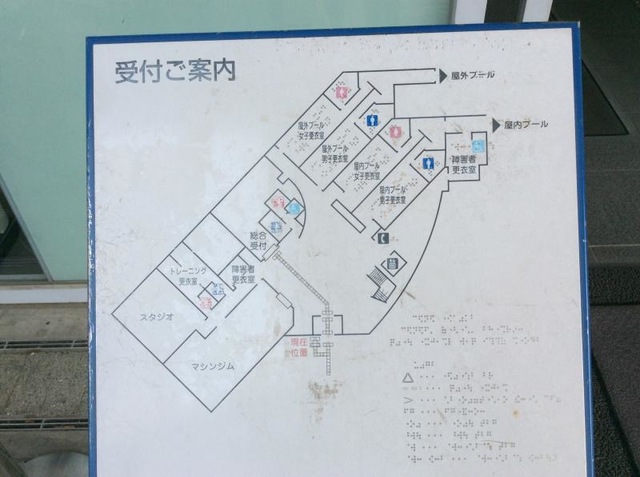 受付ご案内
屋外プール
屋内プール
屋外プール
女子更衣室
屋外プール
男子更衣室
屋内プール
女子更衣室
屋内プール
男子更衣室
障害者
更衣室
総合
受付
トレーニング
更衣室
障害者
更衣室
スタジオ
マシンジム
現在
位置